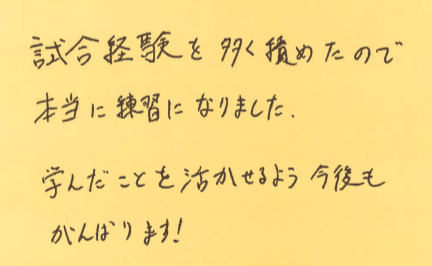 試合経験を多く積めたので
本当に練習になりました.
学んだことを活かせるよう今後も
がんばります!